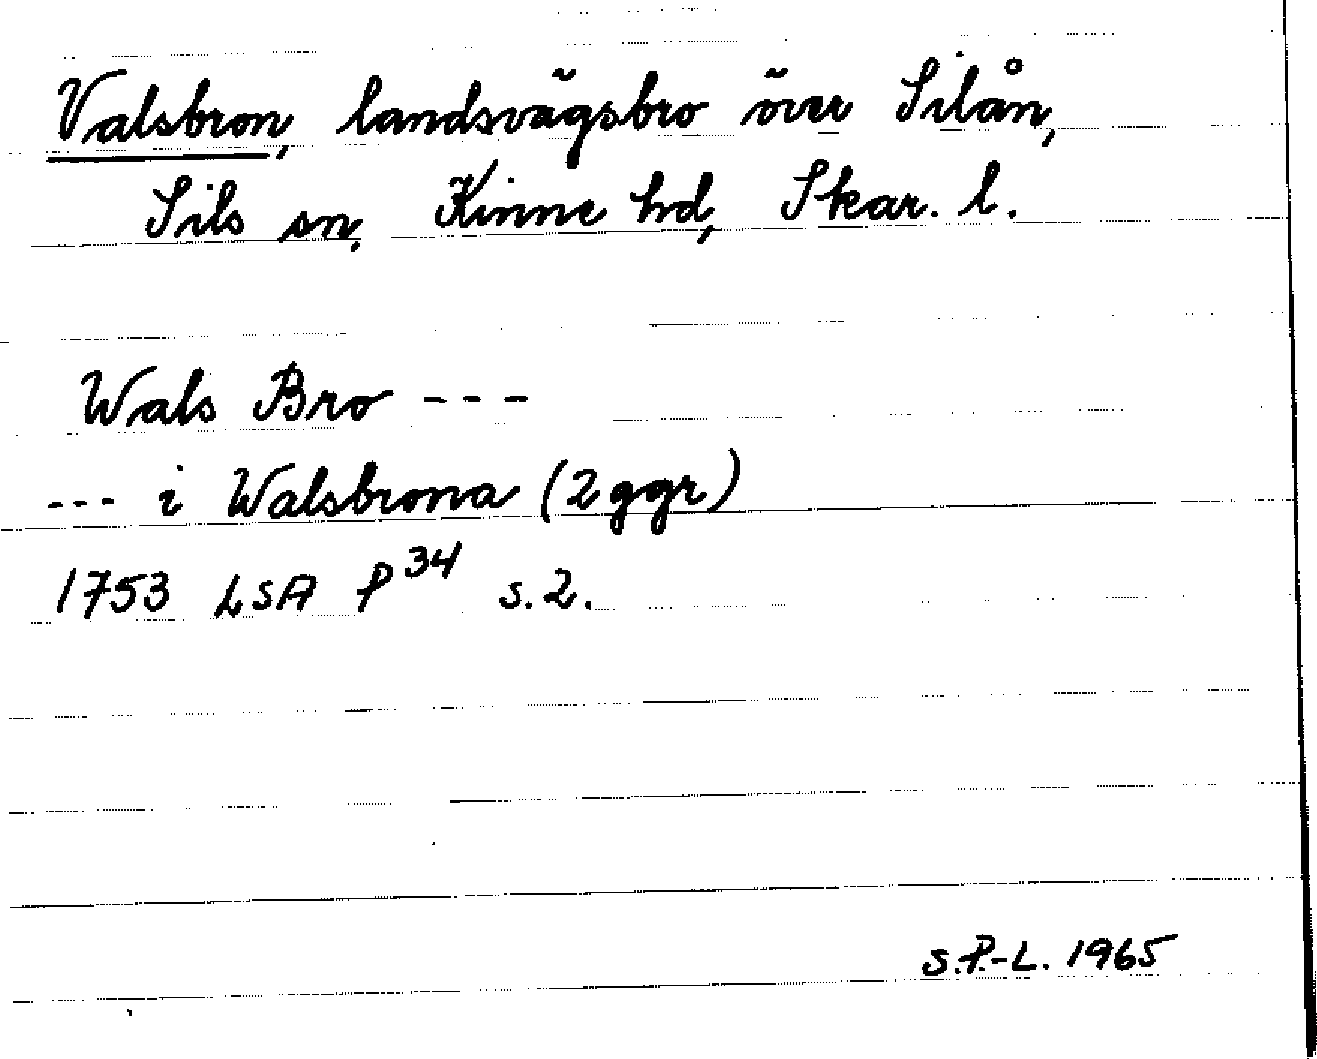 Valsbron, landsvägsbro över Silån,
Sils sn, Kinne hd, Skar. l.
Wals Bro ---
--- i Walsbrona (2 ggr)
1753 LSA P 34 s. 2.
S.P.-L. 1965